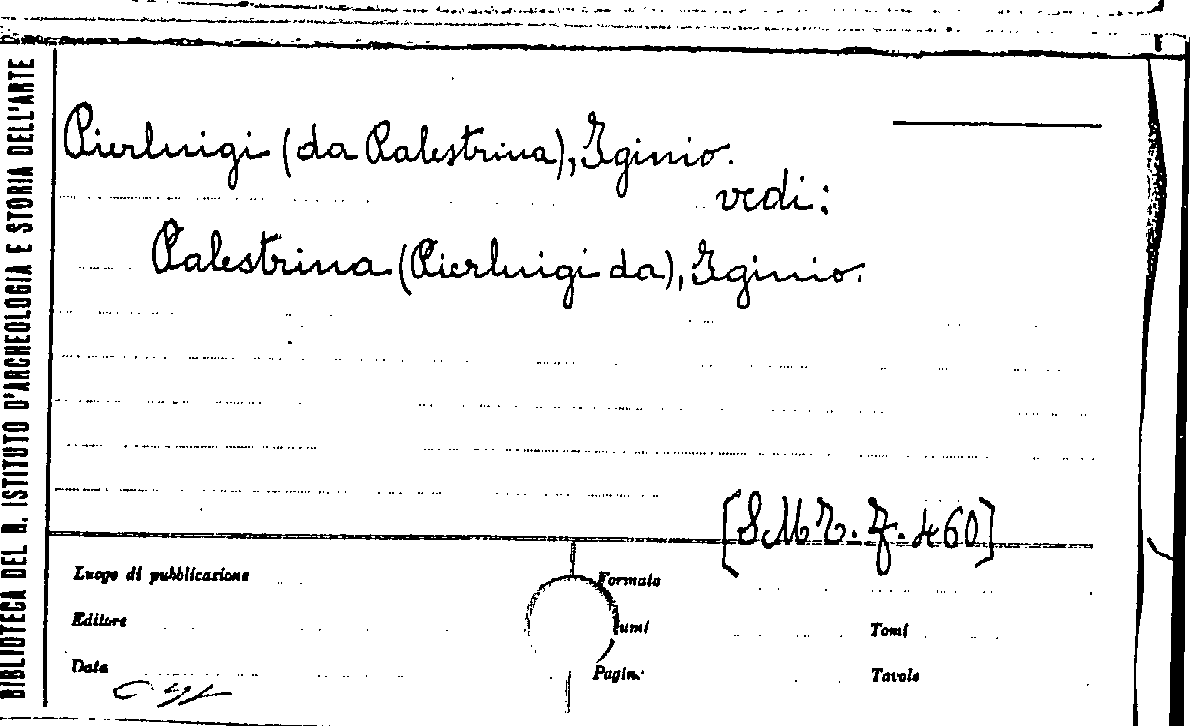 BIBLIOTECA DEL R. ISTITUTO D'ARCHEOLOGIA E STORIA DELL'ARTE
Pierluigi (da Palestrina), Iginio.
vedi:
Palestrina (Pierluigi da), Iginio.
Luogo di pubblicazione
Formato
Editore
Tomi
Data
Pagin
Tavole